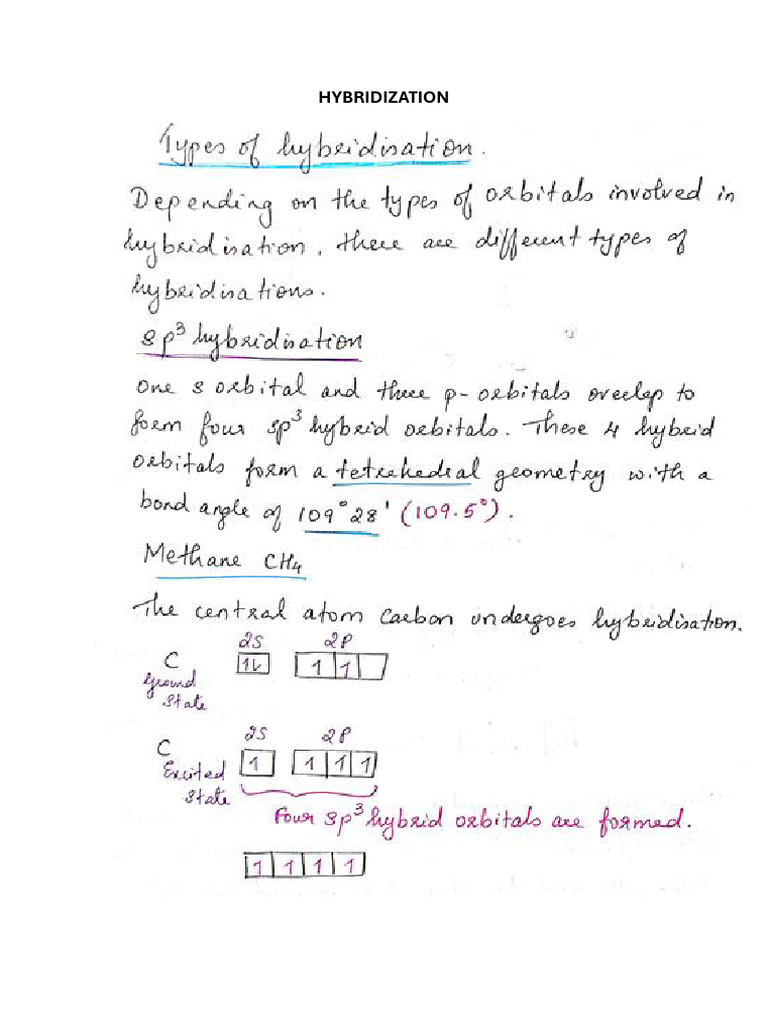 HYBRIDIZATION
Types of hybridisation.
Depending on the types of orbitals involved in
hybridisation, there are different types of
hybridisations.
sp³ hybridisation
One s orbital and three p-orbitals overlap to
form four sp³ hybrid orbitals. These 4 hybrid
orbitals form a tetrahedral geometry with a
bond angle of 109°28' (109.5°).
Methane CH₄
The central atom carbon undergoes hybridisation.
2S 2P
C 1L 1 1
Ground
State
2S 2P
C 1 1 1 1
Excited
State
Four sp³ hybrid orbitals are formed.
1 1 1 1